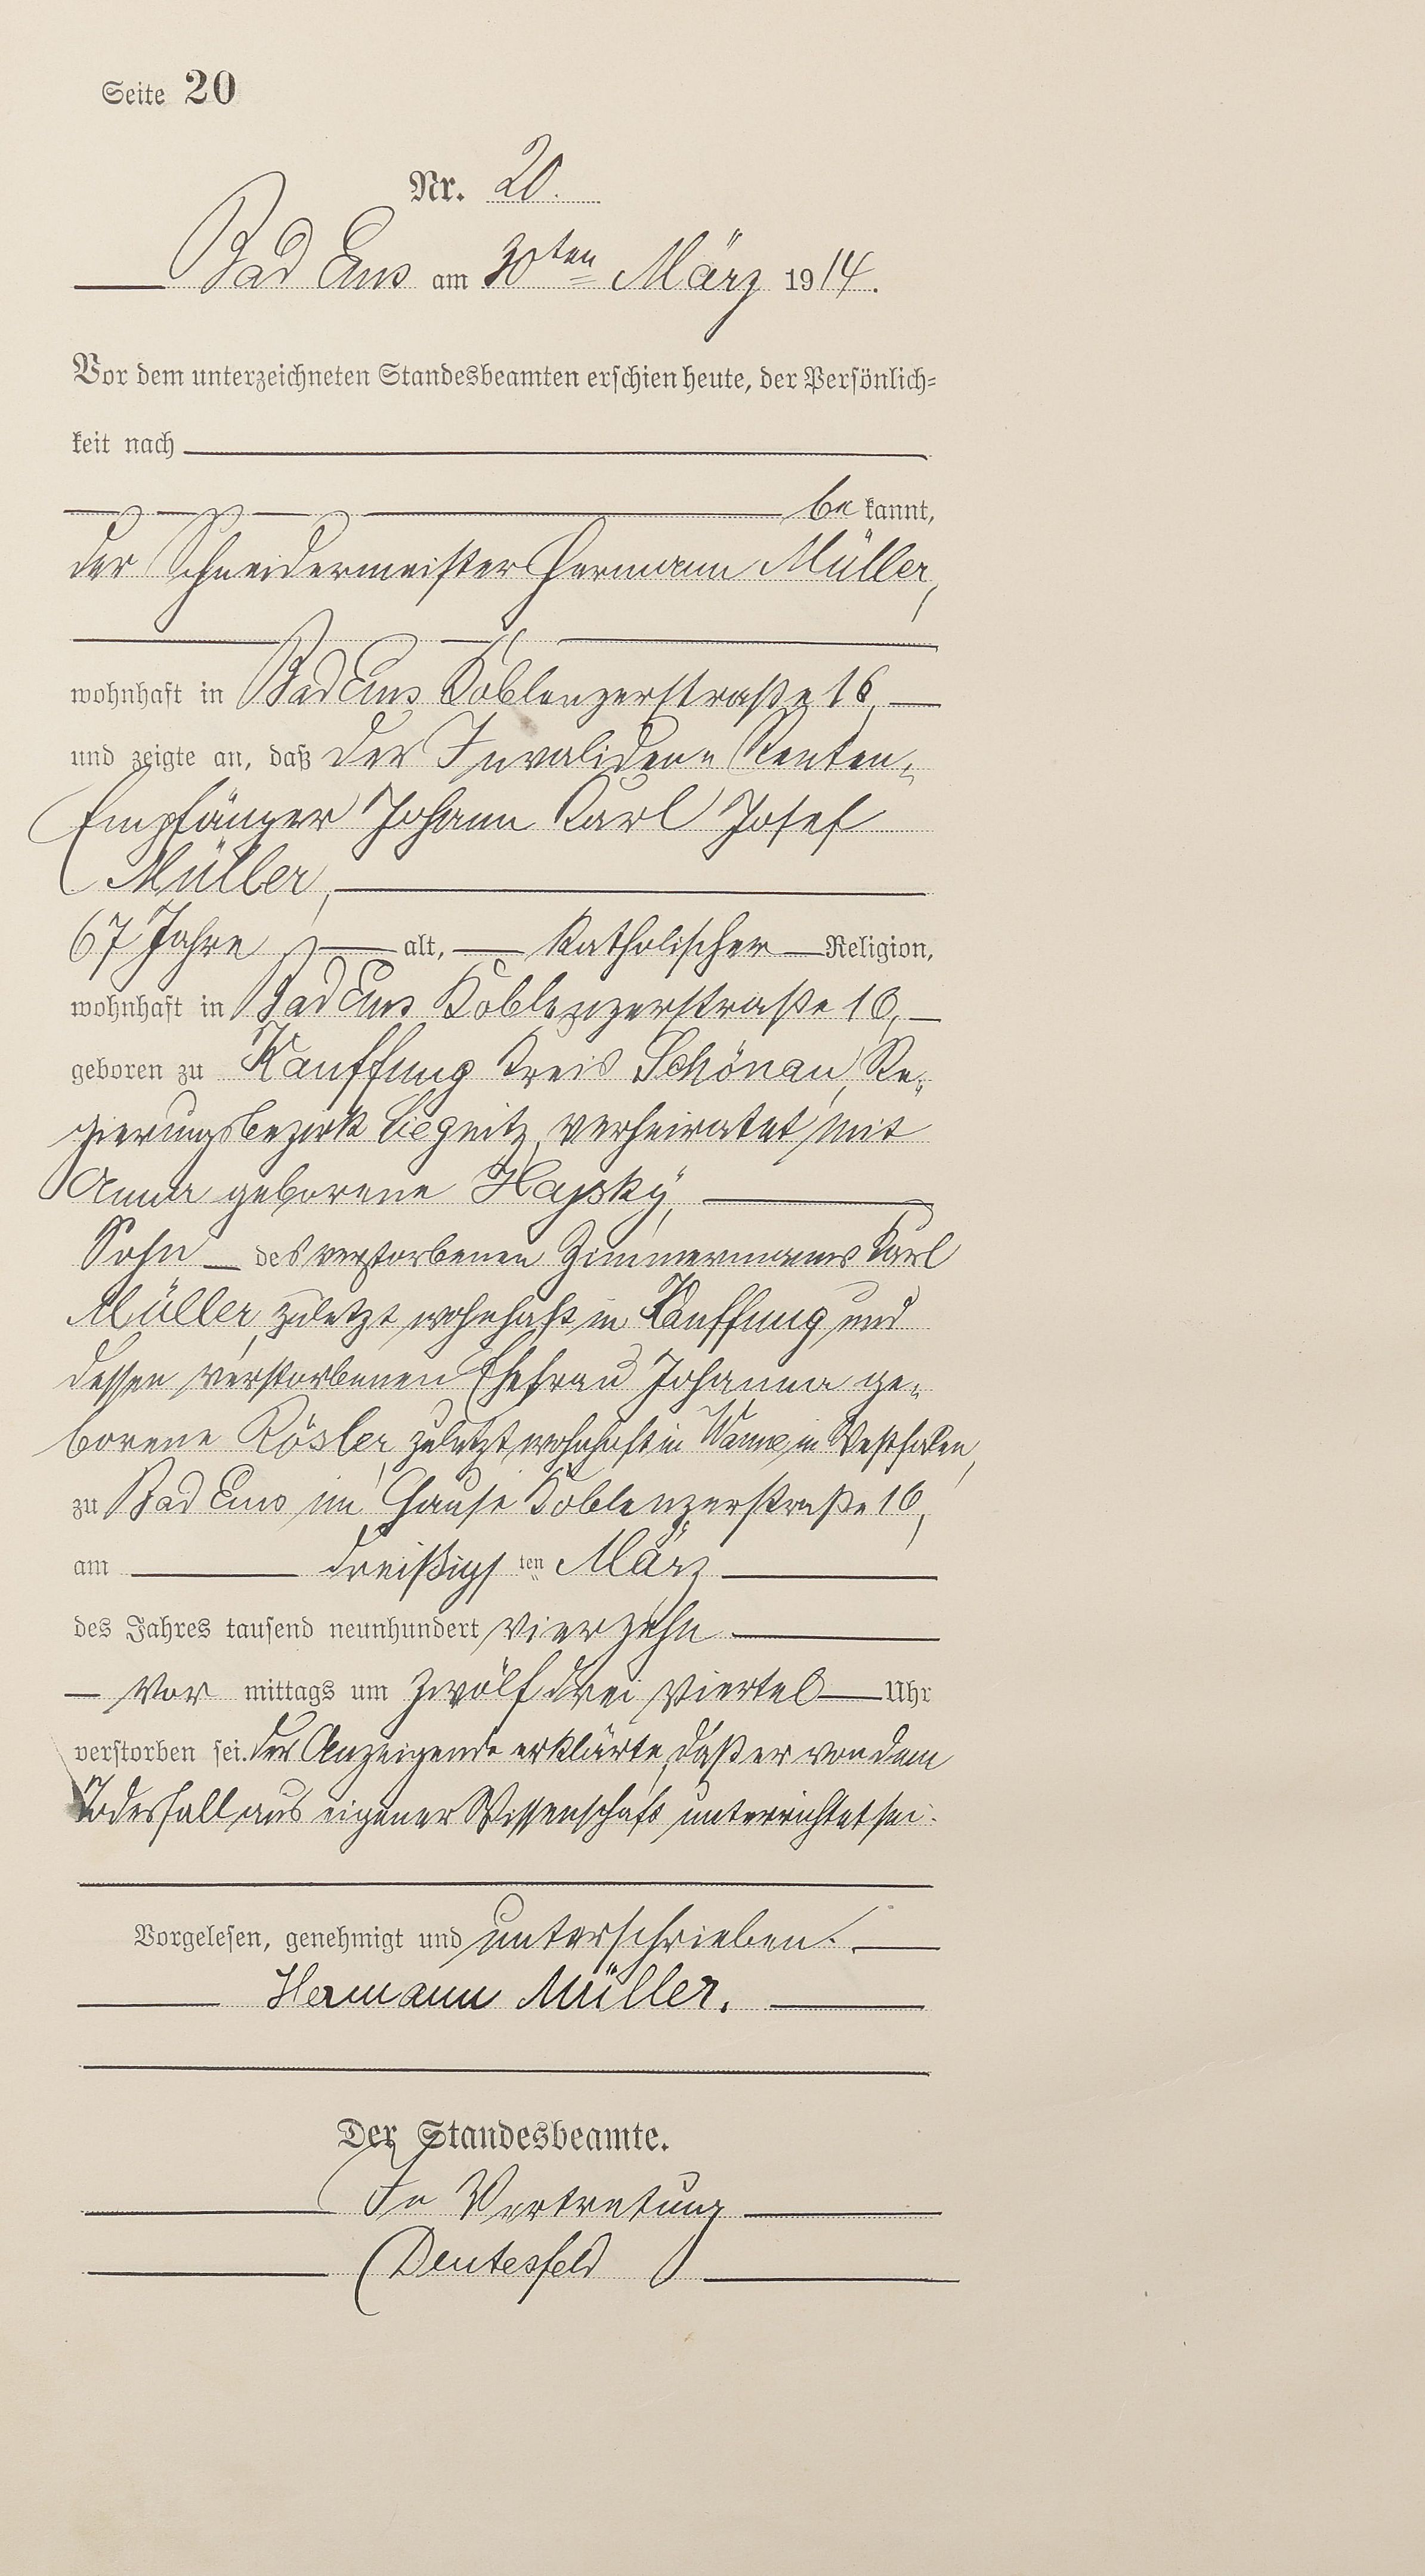 Seite 20
Nr. 20.
Bad Ems am 30ten März 1914.
Vor dem unterzeichneten Standesbeamten erschien heute, der Persönlich=
keit nach
be kannt,
der Schneidermeister Hermann Müller,
wohnhaft in Bad Ems Koblenzerstraße 16,
und zeigte an, daß der Invaliden= Renten=
Empfänger Johann Karl Josef
Müller,
67 Jahre alt, Katholischer Religion,
wohnhaft in Bad Ems Koblenzerstraße 16,
geboren zu Kauffung Kreis Schönau, Re=
gierungsbezirk Liegnitz, verheiratet mit
Anna geborene Hapsky,
Sohn des verstorbenen Zimmermanns Karl
Müller, zuletzt wohnhaft in Kauffung und
dessen verstorbenen Ehefrau Johanna ge=
borene Rösler, zuletzt wohnhaft in Wanne in Westfalen,
zu Bad Ems im Hause Koblenzerstraße 16,
am dreißigs ten März
des Jahres tausend neunhundert vierzehn
Vor mittags um zwölf drei viertel Uhr
verstorben sei. Der Anzeigende erklärte, daß er von dem
Todesfall aus eigener Wissenschaft unterrichtet sei.
Vorgelesen, genehmigt und unterschrieben.
Hermann Müller.
Der Standesbeamte.
In Vertretung
Deutesfeld